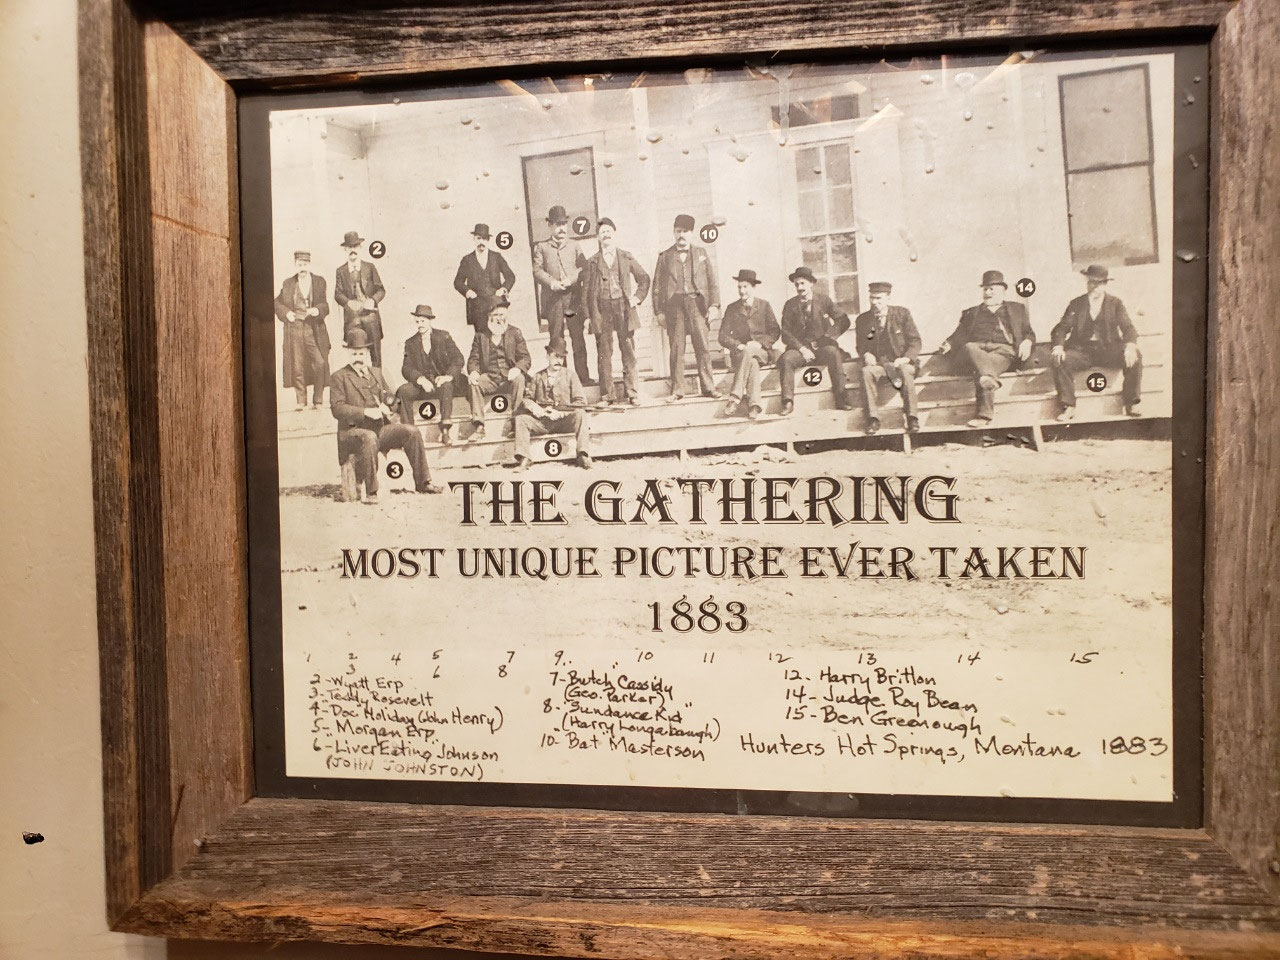 2
5
7
10
14
12
15
4
6
8
3
THE GATHERING
MOST UNIQUE PICTURE EVER TAKEN
1883
1 2 4 5 7 9 10 11 12 13 14 15
3 6 8
2-Wyatt Erp
3-Teddy Rosevelt
4-Doc Holiday (John Henry)
5-"Morgan Erp"
6-LiverEating Johnson
(JOHN JOHNSTON)
7-Butch Cassidy
(Geo. Parker)
8-"Sundance Kid"
(Harry Longabaugh)
10-Bat Masterson
12-Harry Britton
14-Judge Roy Bean
15-Ben Greenough
Hunters Hot Springs, Montana 1883